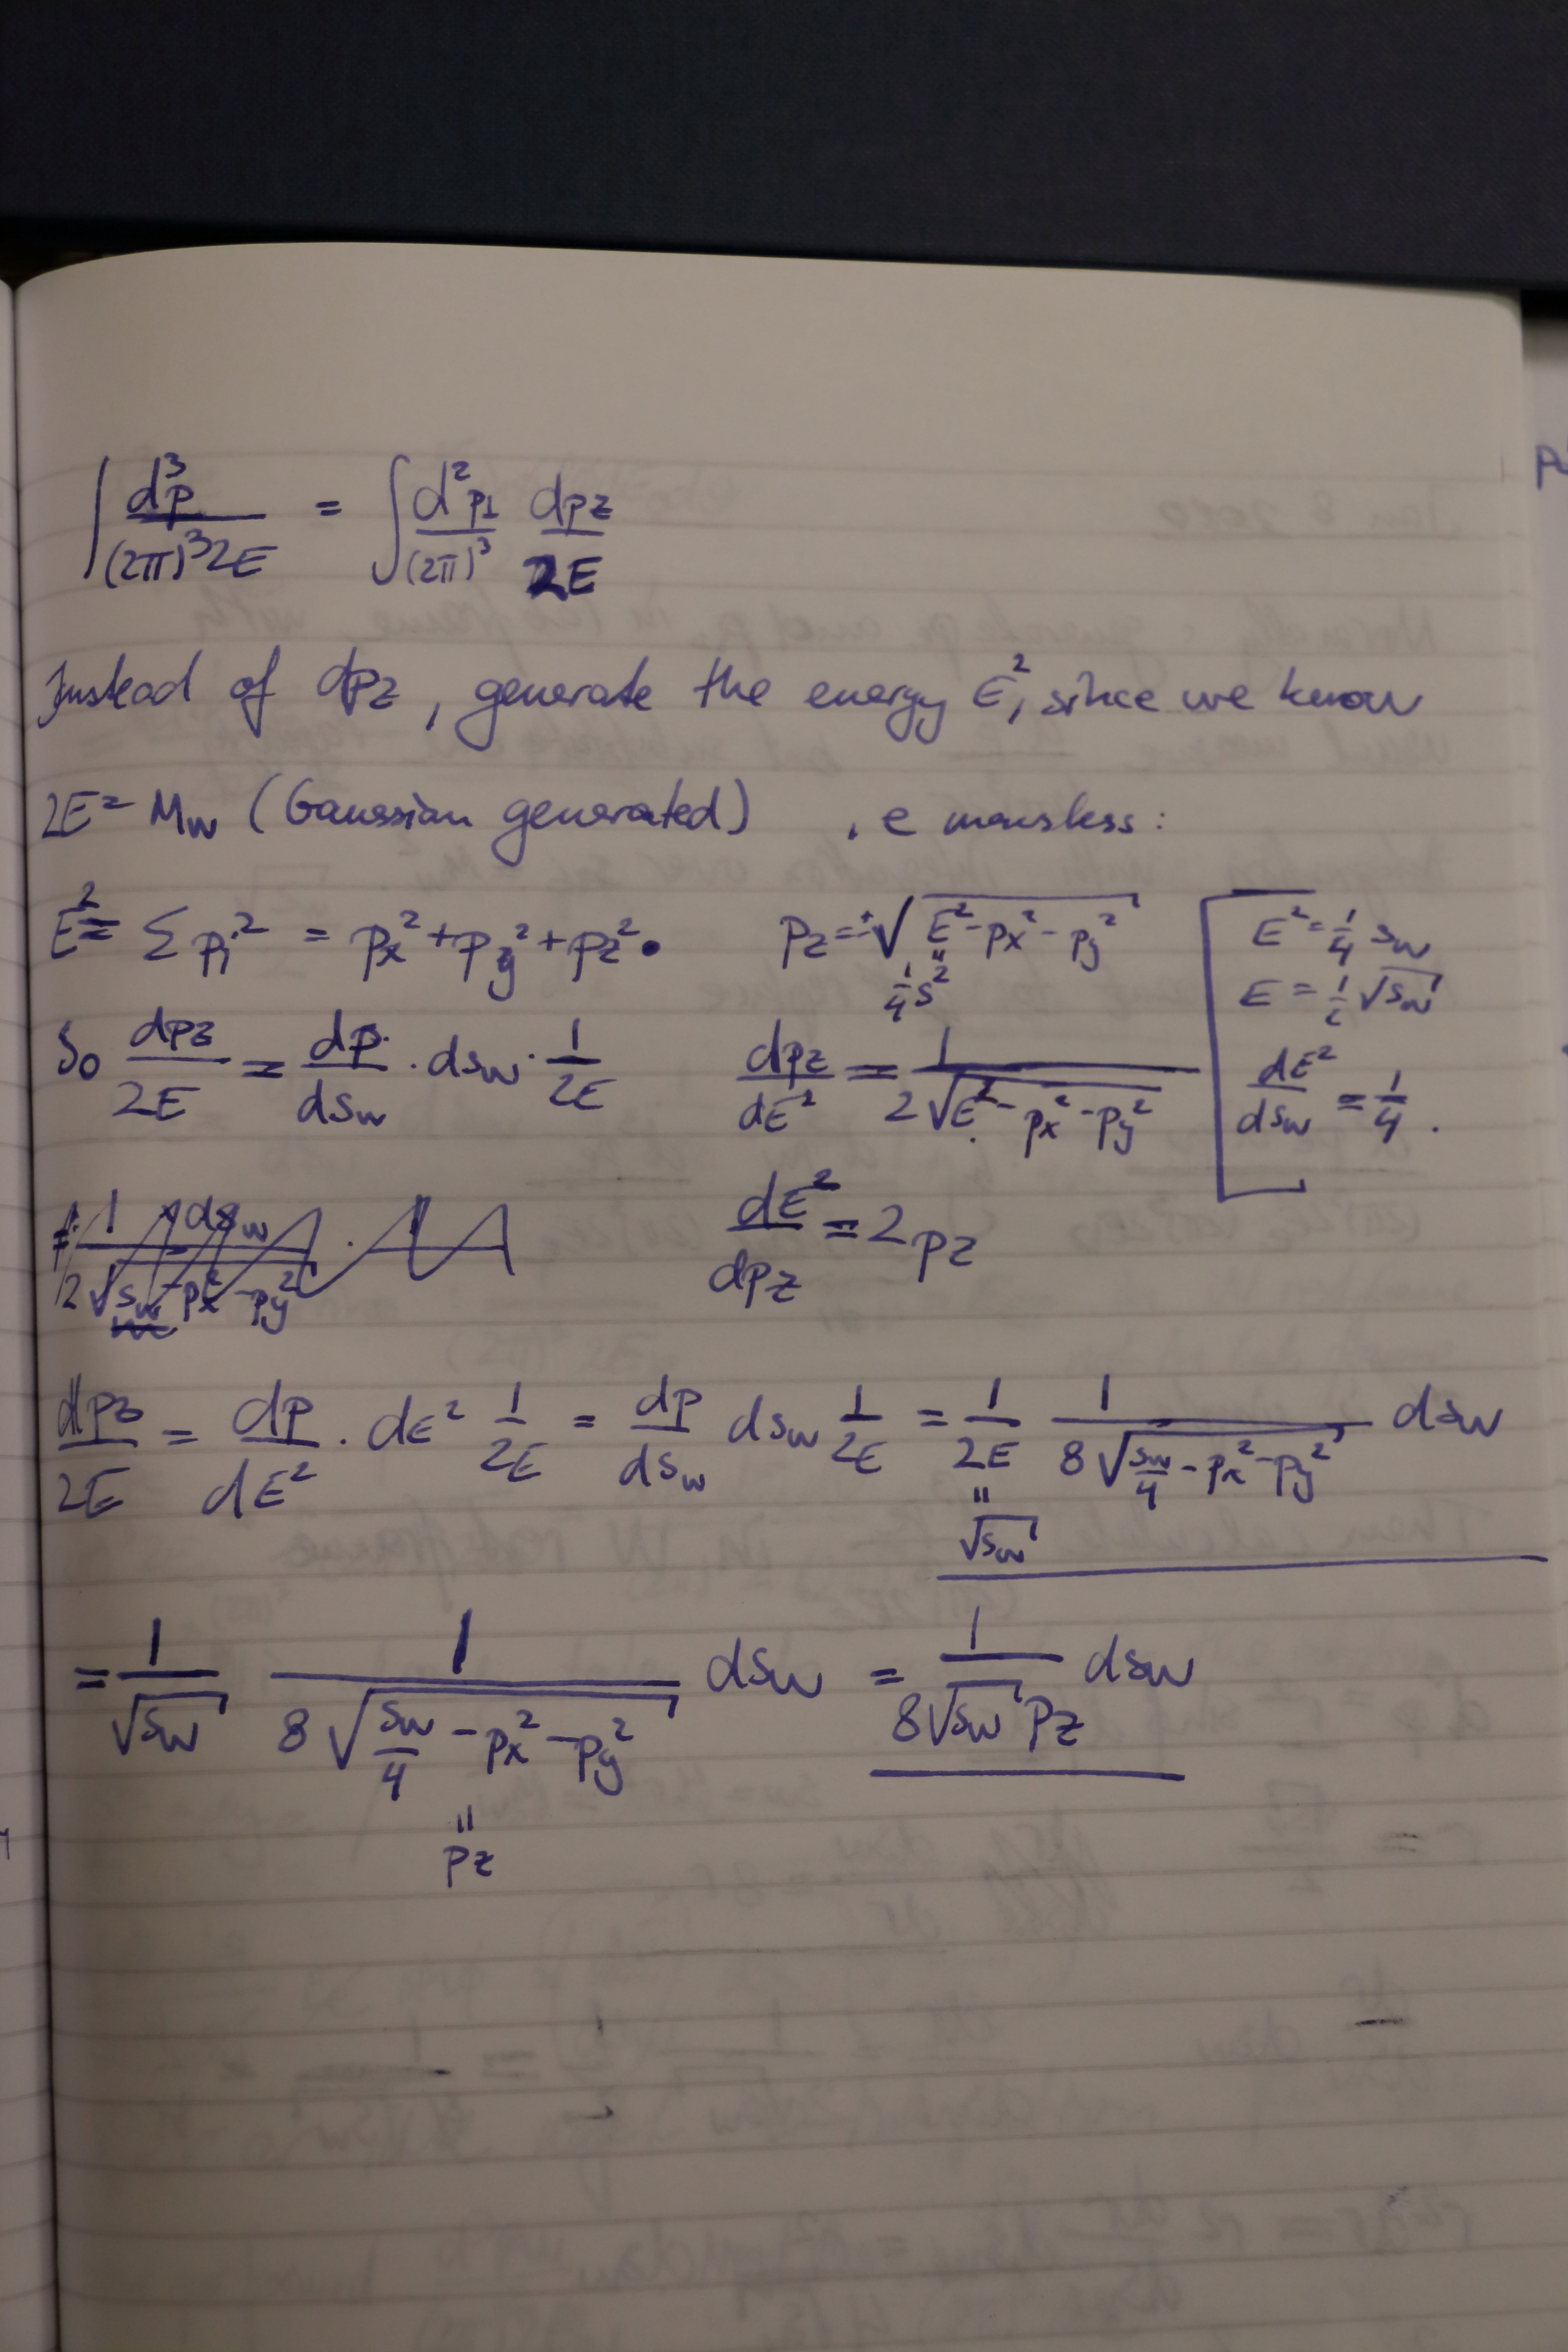 ∫ d³p / (2π)³2E = ∫ d²p⊥ / (2π)³ dpz / 2E
Instead of dpz, generate the energy E², since we know
2E = Mw (Gaussian generated) , e massless:
E² = Σ pi² = px² + py² + pz². pz = ±√(E² - px² - py²) E² = 1/4 sw
" 1/4 s² E = 1/2 √sw
So dpz / 2E = dp / dsw · dsw · 1 / 2E dpz / dE² = 1 / 2√(E² - px² - py²) dE² / dsw = 1/4 .
dE² / dpz = 2pz
dpz / 2E = dp / dE² · dE² 1 / 2E = dp / dsw dsw 1 / 2E = 1 / 2E 1 / 8√(sw/4 - px² - py²) dsw
" √sw
= 1 / √sw 1 / 8√(sw/4 - px² - py²) dsw = 1 / 8√sw pz dsw
" pz